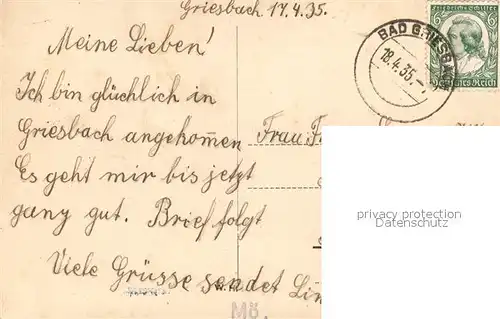 Griesbach 17.4.35.
Meine Lieben!
Ich bin glücklich in
Griesbach angekom̅en
Es geht mir bis jetzt
ganz gut. Brief folgt
Viele Grüsse sendet
Frau
BAD GRIESBA
18.4.35.
6 Friedrich Schiller
Deutsches Reich
privacy protection
Datenschutz
Mö.